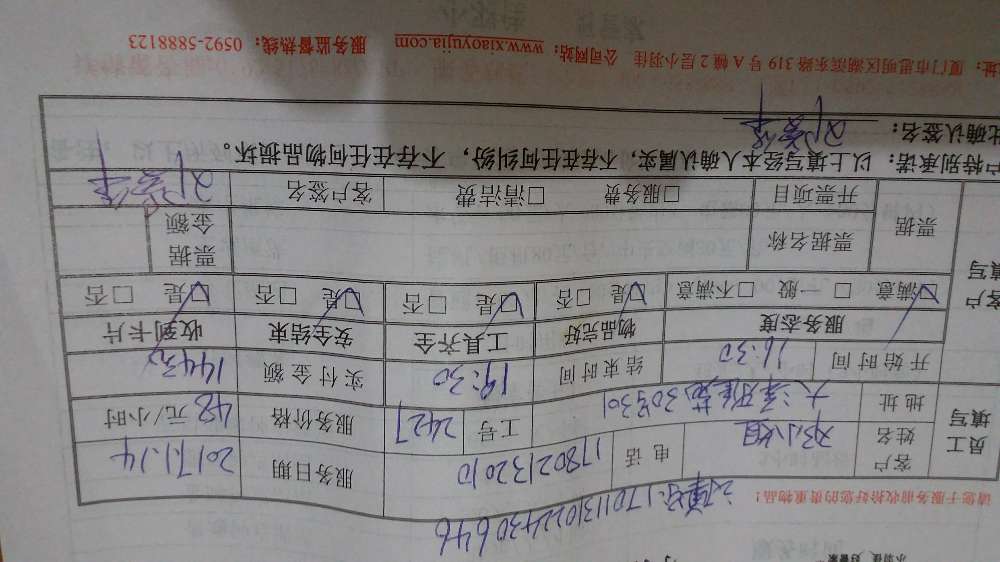 小羽佳 好管家
流单号:170113102430646
请您于服务前收拾好您的贵重物品!
员工填写
客户姓名 邓小姐 电话 17802132010 服务日期 2017.1.14
地址 30号301 工号 2427 服务价格 48元/小时
开始时间 16:30 结束时间 19:30 实付金额 144元
服务态度 物品完好 工具齐全 安全结束 收到卡片
客户填写
☑满意 □一般 □不满意 ☑是 □否 ☑是 □否 ☑是 □否 ☑是 □否
票据 票据名称 票据金额
开票项目 □服务费 □清洁费 客户签名
户特别承诺:以上填写经本人确认属实,不存在任何纠纷,不存在任何物品损坏。
此确认签名:
址:厦门市思明区湖滨东路 319 号 A 幢 2 层小羽佳 公司网站:www.xiaoyujia.com 服务监督热线:0592-5888123